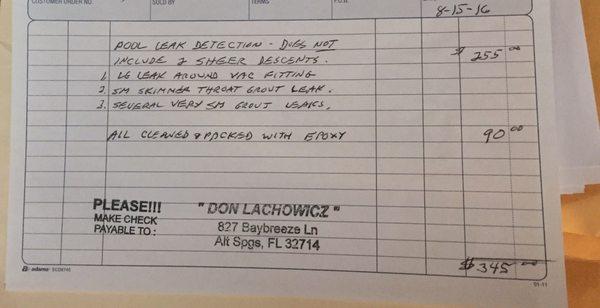 CUSTOMER ORDER NO. SOLD BY TERMS F.O.B.
8-15-16
POOL LEAK DETECTION - DOES NOT
INCLUDE 2 SHEER DESCENTS. $ 255 00
1. LG LEAK AROUND VAC FITTING
2. SM SKIMMER THROAT GROUT LEAK.
3. SEVERAL VERY SM GROUT LEAKS.
ALL CLEANED & PACKED WITH EPOXY 90 00
PLEASE!!! "DON LACHOWICZ"
MAKE CHECK 827 Baybreeze Ln
PAYABLE TO: Alt Spgs, FL 32714
$345 00
adams SCD8740 01-11